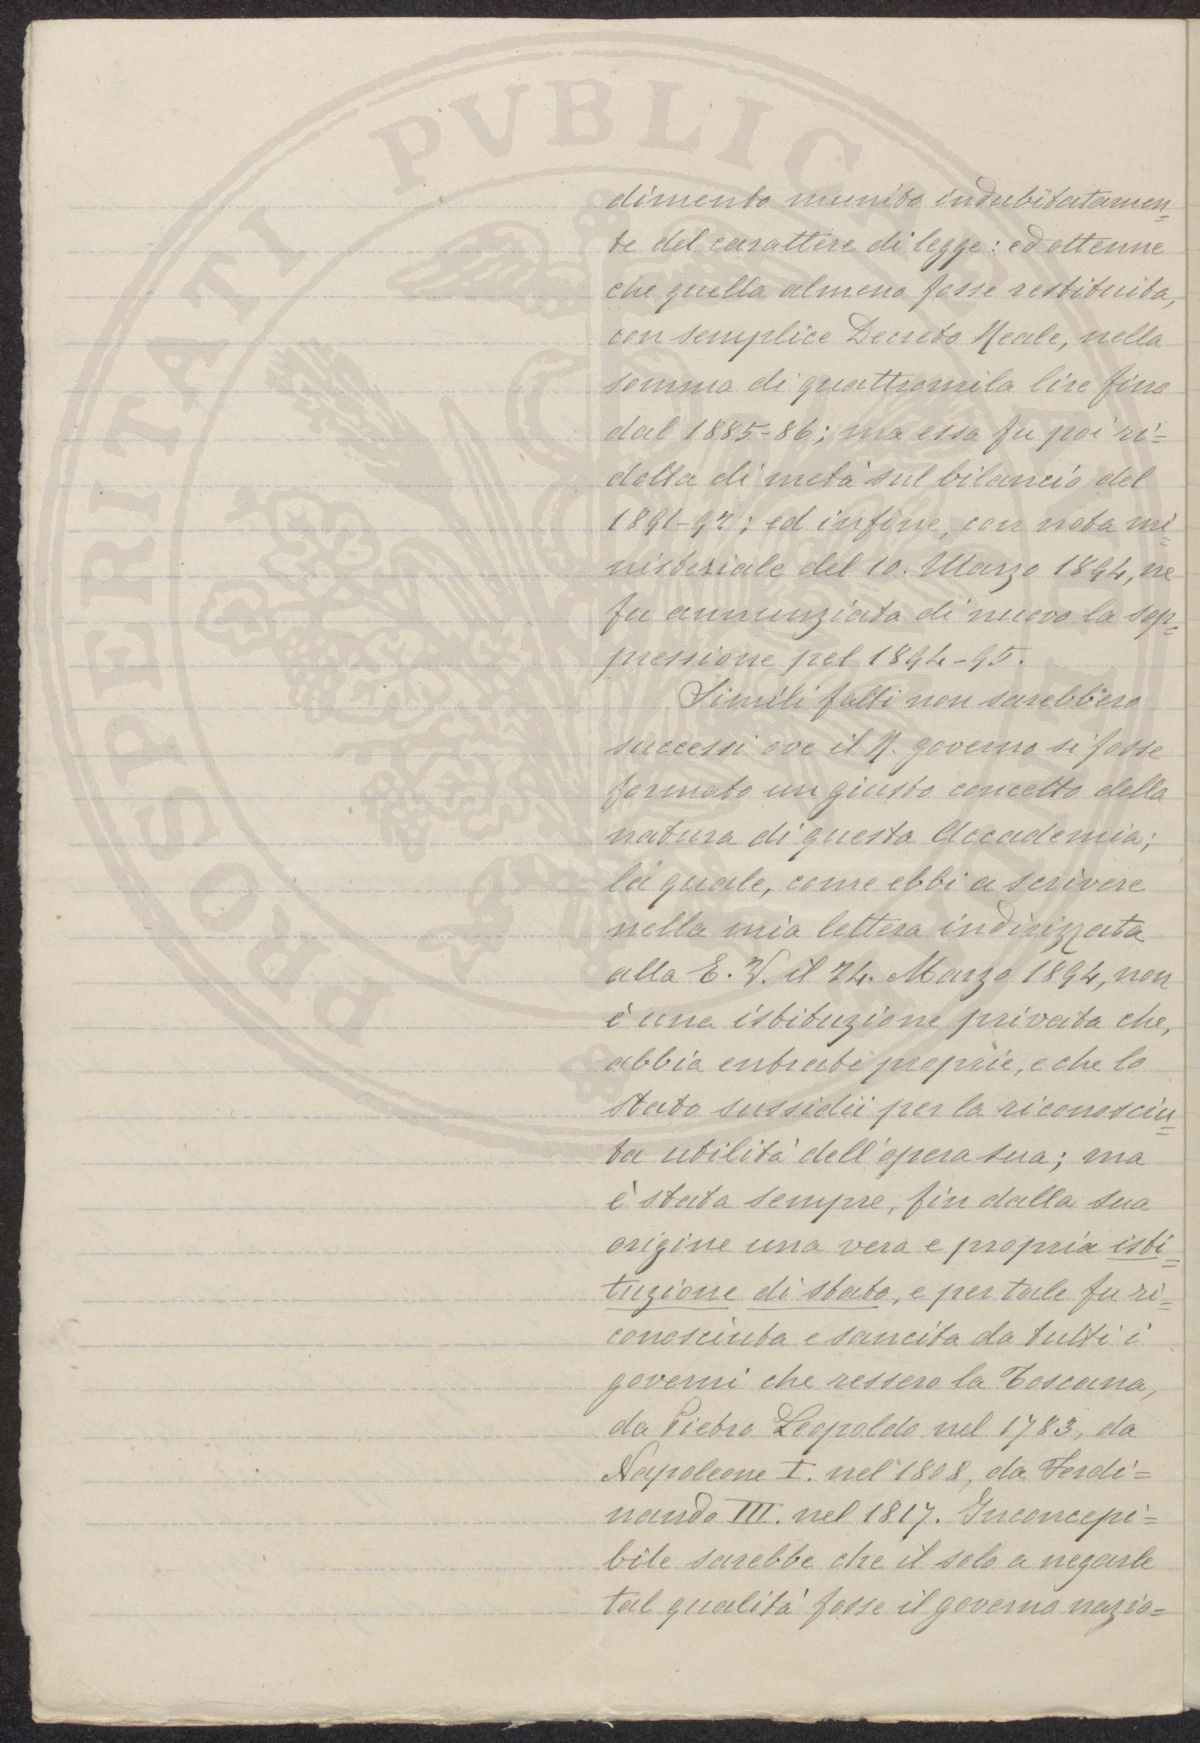 PROSPERITATI PVBLICAE
dimento munito indubitatamen=
te del carattere di legge: ed ottenne
che quella almeno fosse restituita,
con semplice Decreto Reale, nella
somma di quattromila lire fino
dal 1885-86; ma essa fu poi ri=
dotta di metà sul bilancio del
1891-92; ed infine, con nota mi=
nisteriale del 10. Marzo 1894, ne
fu annunziata di nuovo la sop=
pressione pel 1894-95.
Simili fatti non sarebbero
successi ove il R. governo si fosse
formato un giusto concetto della
natura di questa Accademia;
la quale, come ebbi a scrivere
nella mia lettera indirizzata
alla E. V. il 24. Marzo 1894, non
è una istituzione privata che,
abbia entrate proprie, e che lo
stato sussidii per la riconosciu=
ta utilità dell'opera sua; ma
è stata sempre, fin dalla sua
origine una vera e propria isti=
tuzione di stato, e per tale fu ri=
conosciuta e sancita da tutti i
governi che ressero la Toscana,
da Pietro Leopoldo nel 1783, da
Napoleone I. nel 1808, da Ferdi=
nando III. nel 1817. Inconcepi=
bile sarebbe che il solo a negarle
tal qualità fosse il governo nazio=